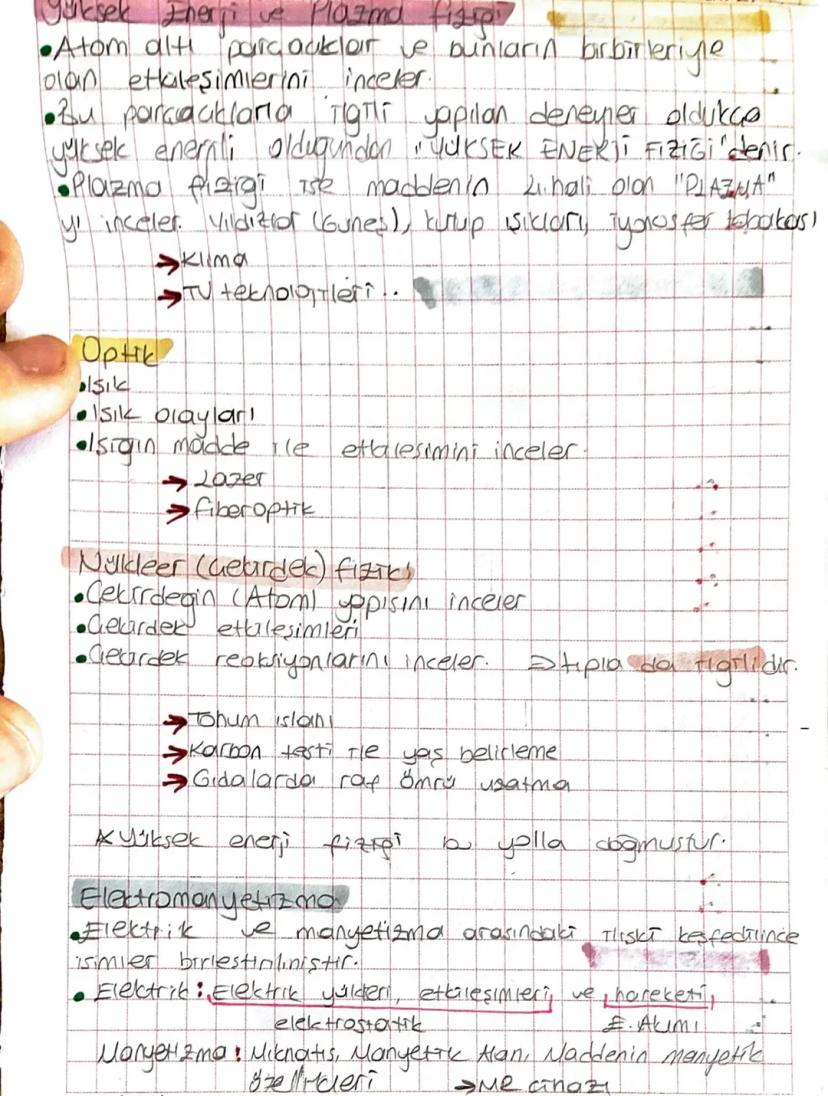 Yüksek Enerji ve Plazma fiziği
• Atom altı parçacıklar ve bunların birbirleriyle
olan etkileşimlerini inceler.
• Bu parçacıklarla ilgili yapılan deneyler oldukça
yüksek enerjili olduğundan "YÜKSEK ENERJİ FİZİĞİ" denir.
• Plazma fiziği ise maddenin 4. hali olan "PLAZMA"
yı inceler. Yıldızlar (Güneş), kutup ışıkları, iyonosfer tabakası
→ Klima
→ TV teknolojileri..
Optik
• Işık
• Işık olayları
• Işığın madde ile etkileşimini inceler.
→ Lazer
→ fiberoptik
Nükleer (Çekirdek) fizik
• Çekirdeğin (Atom) yapısını inceler
• Çekirdek etkileşimleri
• Çekirdek reaksiyonlarını inceler. ⇒ tıpla da ilgilidir.
→ Tohum ıslahı
→ Karbon testi ile yaş belirleme
→ Gıdalarda raf ömrü uzatma
* Yüksek enerji fiziği bu yolla doğmuştur.
Elektromanyetizma
• Elektrik ve manyetizma arasındaki ilişki keşfedilince
isimler birleştirilmiştir.
• Elektrik: Elektrik yükleri, etkileşimleri ve hareketi
elektrostatik E. Akımı
Manyetizma: Mıknatıs, Manyetik Alan, Maddenin manyetik
özellikleri → MR cihazı